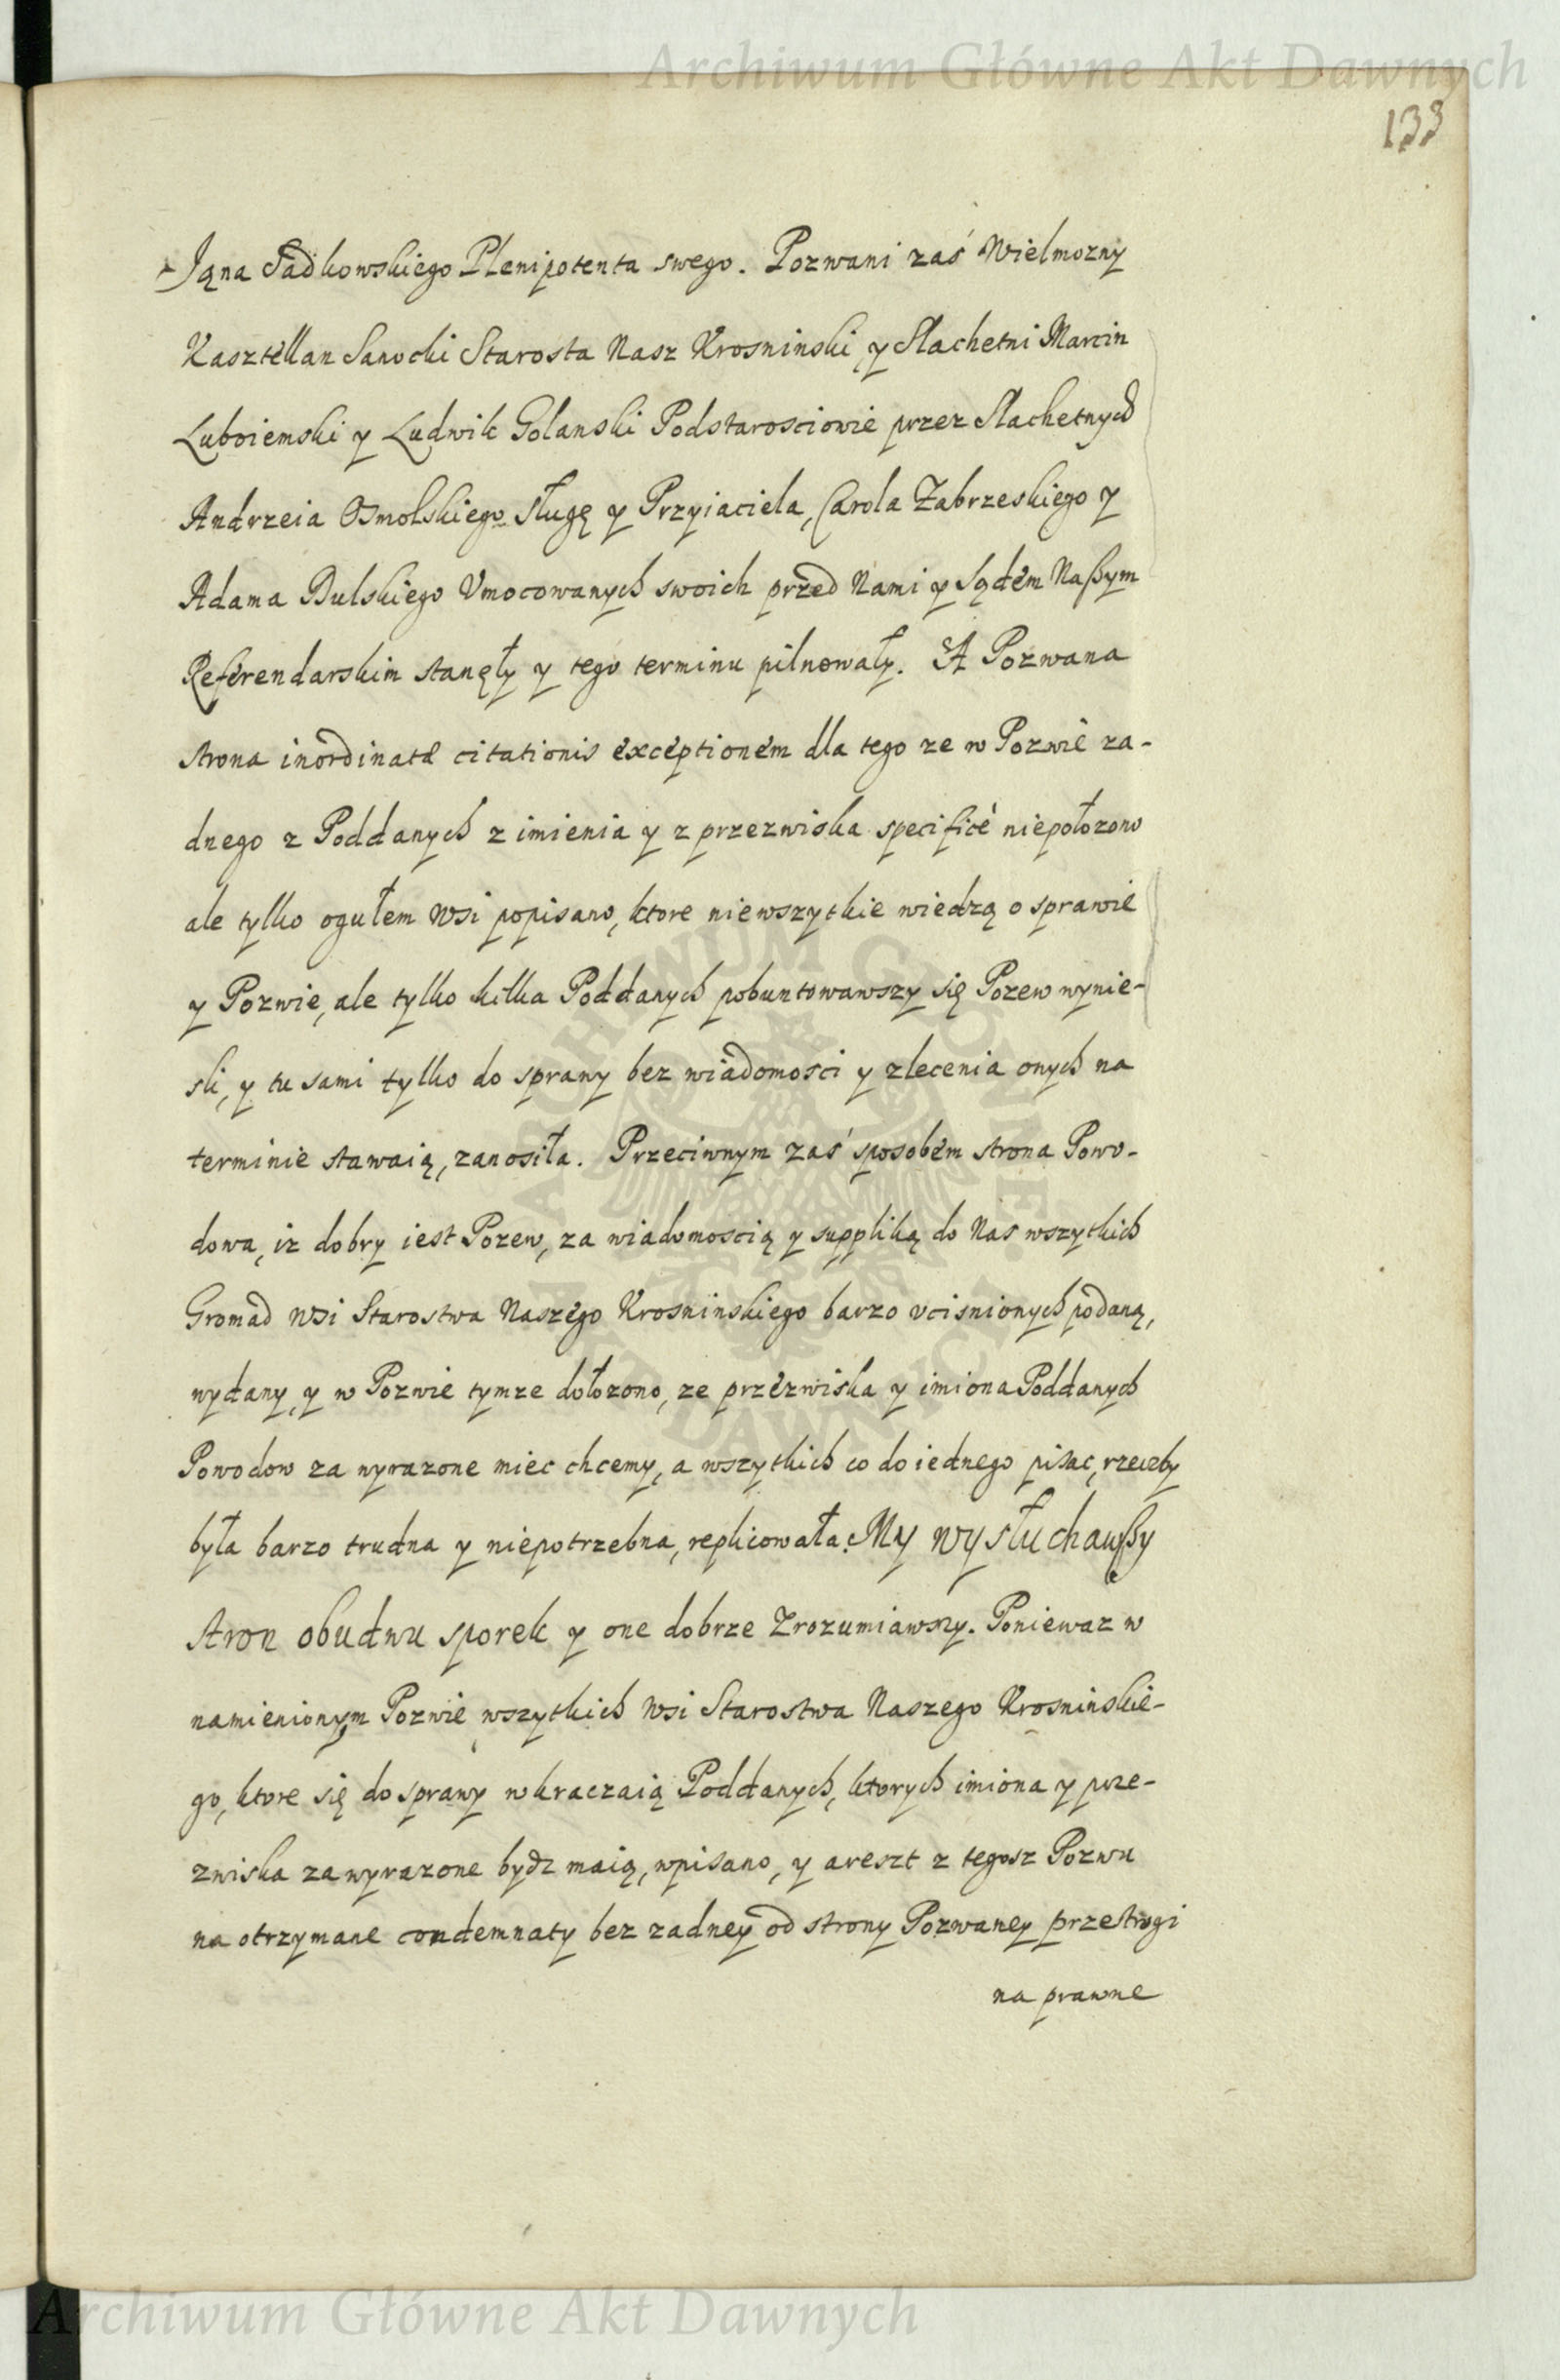 Archiwum Główne Akt Dawnych
133
Jana Sadkowskiego Plenipotenta swego. Pozwani zaś Wielmozny
Kasztellan Sanocki Starosta Nasz Krosninski y Slachetni Marcin
Luboiemski y Ludwik Golanski Podstarosciowie przez Slachetnych
Andrzeia Osmolskiego Sługę y Przyiaciela, Carola Zabrzeskiego y
Adama Bulskiego Vmocowanych swoich przed Nami y Sądem Naßym
Referendarskim stanęły y tego terminu pilnowały. A Pozwana
strona inordinatæ citationis exceptionem dla tego ze w Pozwie za-
dnego z Poddanych z imienia y z przezwiska specificé niepołozono
ale tylko ogułem Wsi popisano, ktore niewszytkie wiedzą o sprawie
y Pozwie, ale tylko kilka Poddanych pobuntowawszy się Pozew wynie-
sli, y tu sami tylko do sprawy bez wiadomosci y zlecenia onych na
terminie stawaią, zanosiła. Przeciwnym zaś sposobem strona Powo-
dowa, iz dobry iest Pozew, za wiadomoscią y suppliką do Nas wszytkich
Gromad Wsi Starostwa Naszego Krosninskiego barzo vcisnionych podaną,
wydany, y w Pozwie tymze dołozono, ze przezwiska y imiona Poddanych
Powodow za wyrazone miec chcemy, a wszytkich co do iednego pisac, rzeczby
była barzo trudna y niepotrzebna, replicowała. My wysłuchawßy
stron obudwu sporek y one dobrze Zrozumiawszy. Poniewaz w
namienionym Pozwie wszytkich Wsi Starostwa Naszego Krosninskie-
go, ktore się do sprawy wkraczaią Poddanych, ktorych imiona y prze-
zwiska za wyrazone bydz maią, wpisano, y areszt z tegosz Pozwu
na otrzymane condemnaty bez zadney od strony Pozwaney przestrogi
na prawne
Archiwum Główne Akt Dawnych